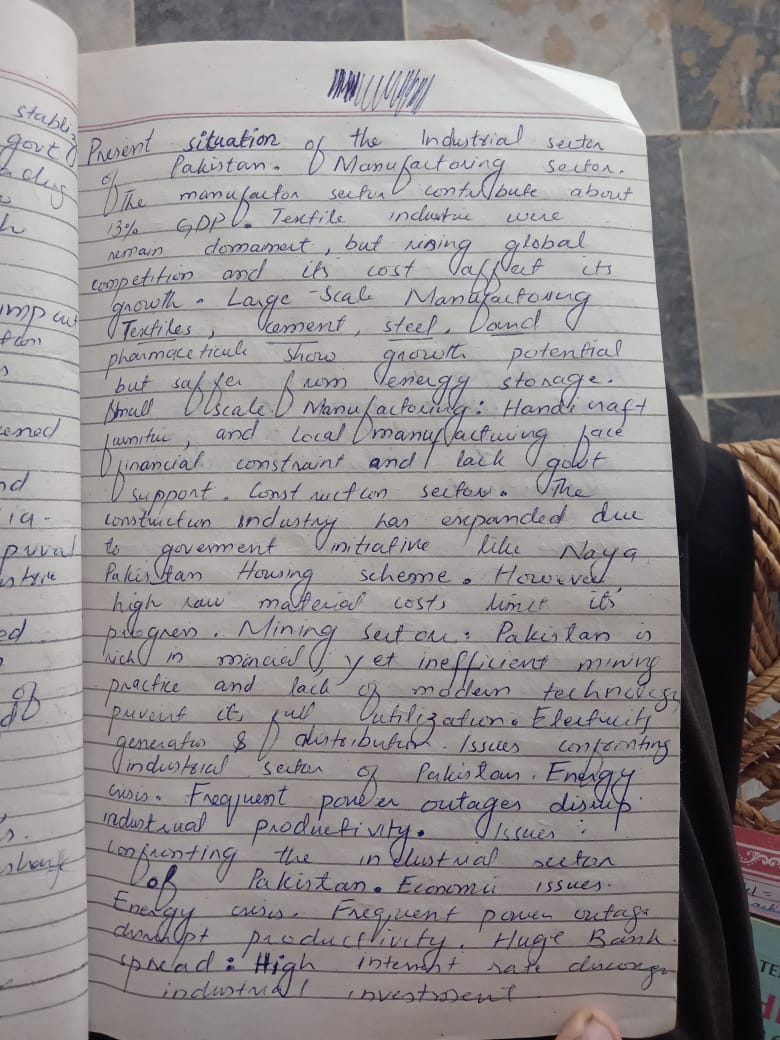 stabliz
govt
Present situation of the Industrial sector
of Pakistan. Manufactoring sector.
The manufactor sector contribute about
13% GDP. Textile industrie were
remain domament, but rising global
competition and its cost affect its
growth. Large-Scale Manufactoring
Textiles, cement, steel, and
pharmaceticule show growth potential
but saffer from energy storage.
Small Scale Manufactoring: Handicraft
furnitue, and Local manufactuing face
financial constraint and lack govt
support. Construction sector. The
construction industry has expanded due
to goverment initiative like Naya
Pakistan Housing scheme. However,
high raw material costs limit its
progress. Mining sector: Pakistan is
rich in mineral, yet inefficient mining
practice and lack of modern technology
prevent its full utilization. Electricity
generator & distribution. Issues confronting
industrial sector of Pakistan. Energy
crisis. Frequent power outages disrup
industrual productivity. Issues:
confronting the industrual sector
of Pakistan. Economic issues.
Energy crisis. Frequent power outage
disrupt productivity. Huge Bank
spread: High interest rate discourge
industrial investment